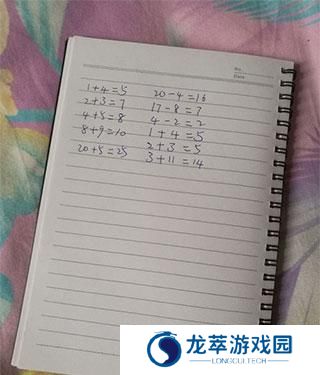 No.
Date
1+4=5 20-4=16
2+3=7 17-8=3
4+5=8 4-2=2
8+9=10 1+4=5
20+5=25 2+3=5
3+11=14
龙萃游戏园
LONGCUITECH